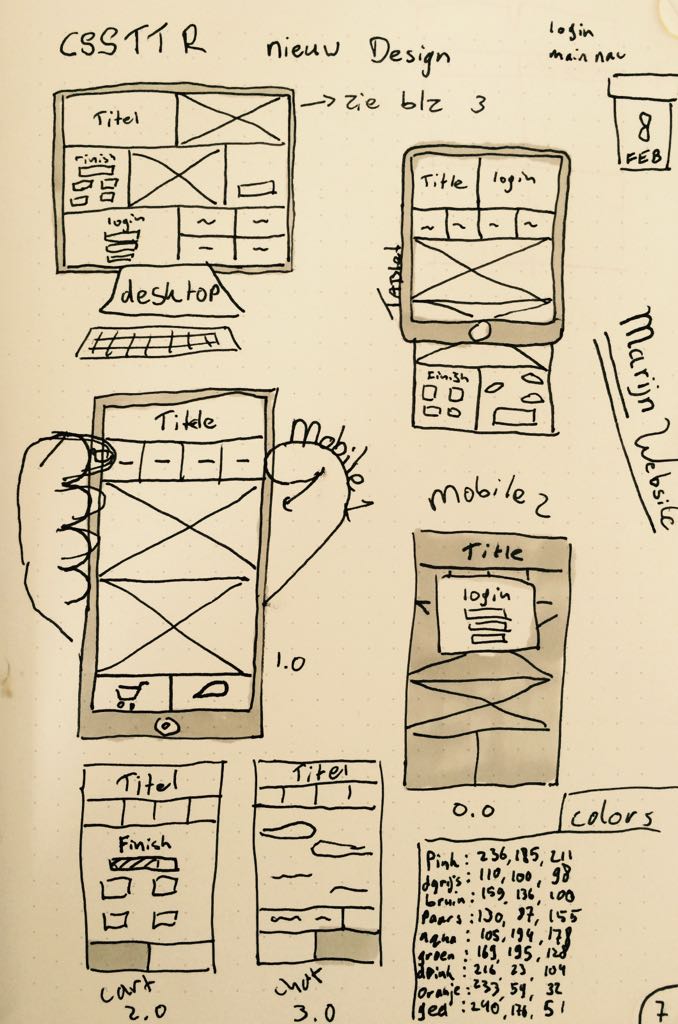 CSSTTR
nieuw Design
login
main nav
8
FEB
→ zie blz 3
Titel
Finish
login
desktop
Title
login
Tablet
Finish
Marijn Website
Title
Mobile 1
1.0
Mobile 2
Title
login
0.0
Titel
Finish
cart
2.0
Titel
chat
3.0
colors
Pink: 236, 185, 211
dgrijs: 110, 100, 98
bruin: 159, 136, 100
Paars: 130, 87, 155
aqua: 105, 194, 179
groen: 169, 195, 128
dPink: 216, 23, 104
Oranje: 233, 59, 32
geel: 240, 176, 51
7